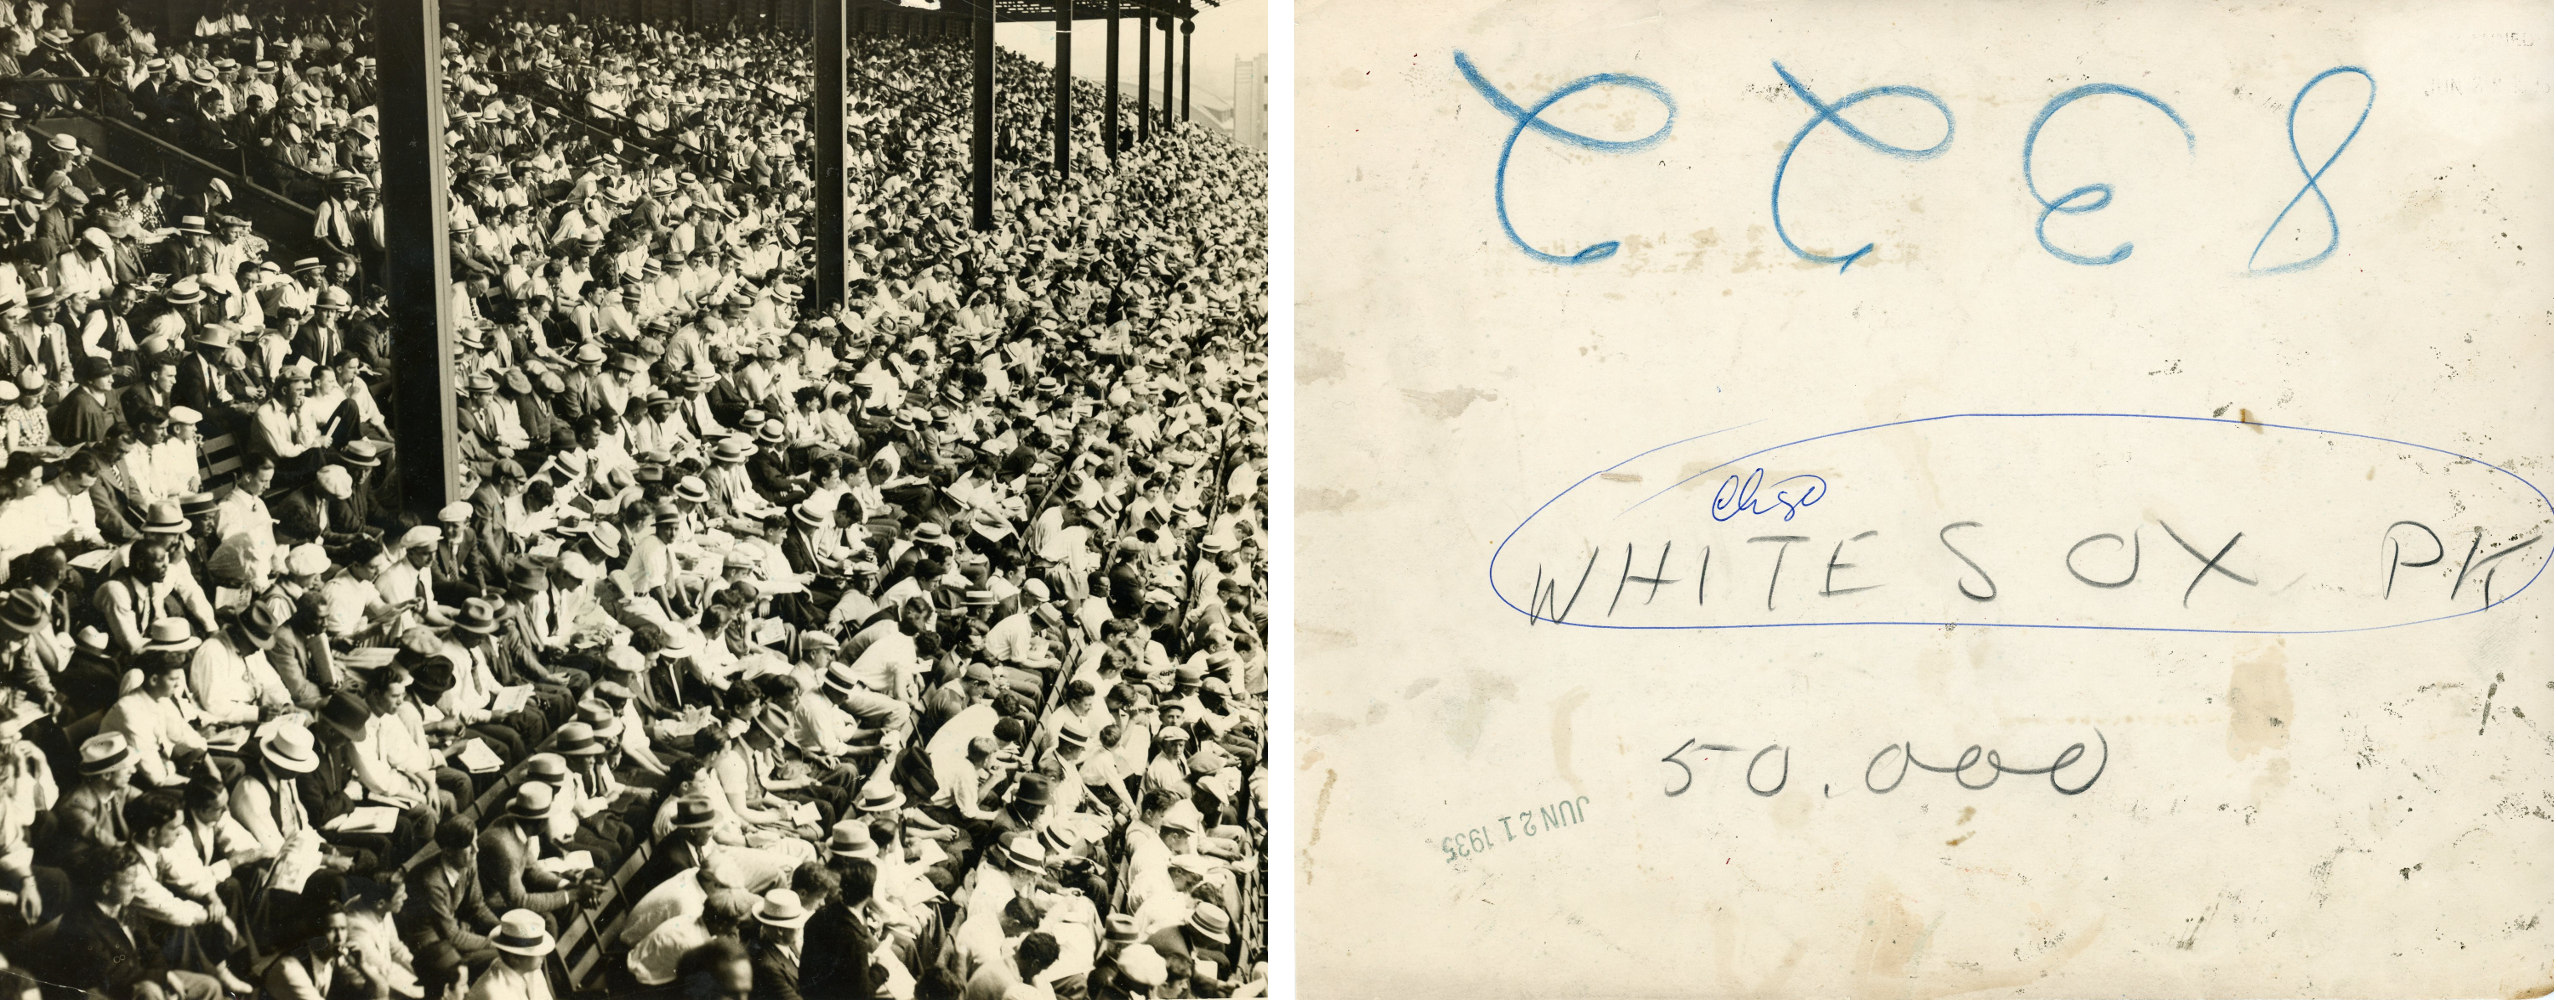 8322
Chgo
WHITE SOX PK
50.000
JUN 21 1935